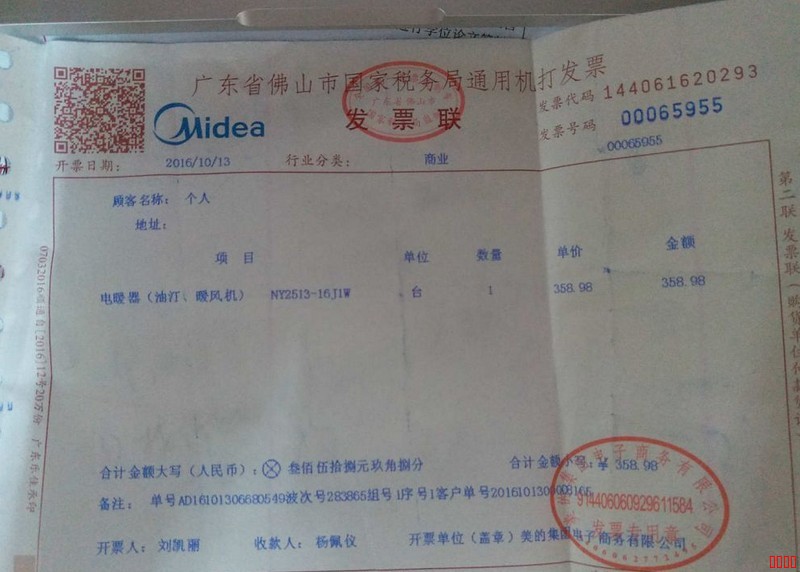 广东省佛山市国家税务局通用机打发票
Midea
发票联
发票代码 144061620293
发票号码 00065955
00065955
开票日期: 2016/10/13 行业分类: 商业
顾客名称: 个人
地址:
项目 单位 数量 单价 金额
电暖器(油汀、暖风机) NY2513-16J1W 台 1 358.98 358.98
合计金额大写(人民币): ⊗ 叁佰伍拾捌元玖角捌分 合计金额小写: ¥ 358.98
备注: 单号AD16101306680549波次号283865组号1序号1客户单号2016101300008165
开票人: 刘凯丽 收款人: 杨佩仪 开票单位(盖章) 美的集团电子商务有限公司
914406060929611584
发票专用章
第二联 发票联